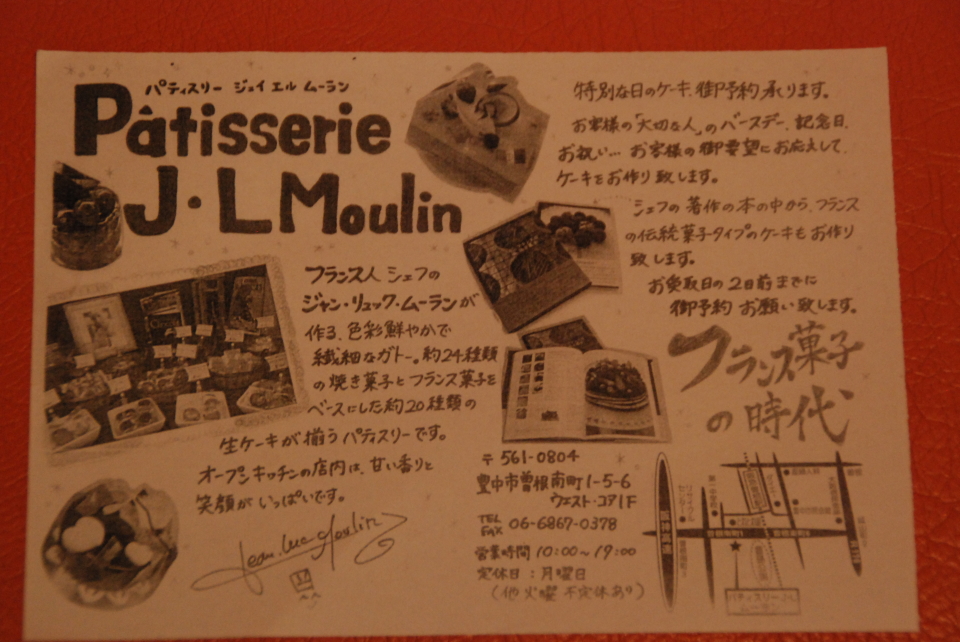 パティスリー ジェイ エル ムーラン
Pâtisserie
J・L Moulin
フランス人 シェフの
ジャン・リュック・ムーランが
作る、色彩鮮やかで
繊細なガトー。約24種類
の焼き菓子とフランス菓子を
ベースにした約20種類の
生ケーキが揃うパティスリーです。
オープンキッチンの店内は、甘い香りと
笑顔がいっぱいです。
Jean-Luc Moulin
特別な日のケーキ、御予約承ります。
お客様の「大切な人」のバースデー、記念日、
お祝い… お客様の御要望にお応えして、
ケーキをお作り致します。
シェフの著作の本の中から、フランス
の伝統菓子タイプのケーキもお作り
致します。
お受取日の2日前までに
御予約お願い致します。
フランス菓子
の時代
〒561-0804
豊中市曽根南町1-5-6
ウエスト・コア1F
TEL
FAX 06-6867-0378
営業時間 10:00~19:00
定休日:月曜日
(他火曜不定休あり)
パティスリーJ・L
ムーラン